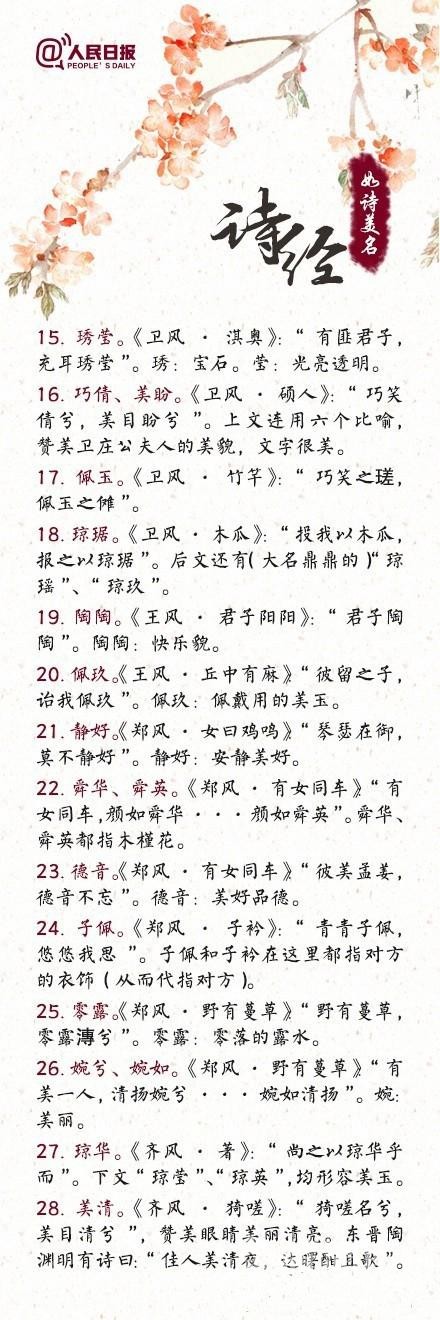 @人民日报
PEOPLE'S DAILY
如诗美名
诗经
15. 琇莹。《卫风 · 淇奥》：“ 有匪君子，
充耳琇莹 ”。琇：宝石。莹：光亮透明。
16. 巧倩、美盼。《卫风 · 硕人》：“ 巧笑
倩兮，美目盼兮 ”。上文连用六个比喻，
赞美卫庄公夫人的美貌，文字很美。
17. 佩玉。《卫风 · 竹竿》：“ 巧笑之瑳，
佩玉之傩 ”。
18. 琼琚。《卫风 · 木瓜》：“ 投我以木瓜，
报之以琼琚 ”。后文还有( 大名鼎鼎的 )“ 琼
瑶 ”、“ 琼玖 ”。
19. 陶陶。《王风 · 君子阳阳》：“ 君子陶
陶 ”。陶陶：快乐貌。
20. 佩玖。《王风 · 丘中有麻》“ 彼留之子，
诒我佩玖 ”。佩玖：佩戴用的美玉。
21. 静好。《郑风 · 女曰鸡鸣》“ 琴瑟在御，
莫不静好 ”。静好：安静美好。
22. 舜华、舜英。《郑风 · 有女同车》“ 有
女同车，颜如舜华 · · · 颜如舜英 ”。舜华、
舜英都指木槿花。
23. 德音。《郑风 · 有女同车》“ 彼美孟姜，
德音不忘 ”。德音：美好品德。
24. 子佩。《郑风 · 子衿》：“ 青青子佩，
悠悠我思 ”。子佩和子衿在这里都指对方
的衣饰 ( 从而代指对方 )。
25. 零露。《郑风 · 野有蔓草》“ 野有蔓草，
零露漙兮 ”。零露：零落的露水。
26. 婉兮、婉如。《郑风 · 野有蔓草》“ 有
美一人，清扬婉兮 · · · 婉如清扬 ”。婉：
美丽。
27. 琼华。《齐风 · 著》：“ 尚之以琼华乎
而 ”。下文“ 琼莹 ”、“ 琼英 ”，均形容美玉。
28. 美清。《齐风 · 猗嗟》：“ 猗嗟名兮，
美目清兮 ”，赞美眼睛美丽清亮。东晋陶
渊明有诗曰：“ 佳人美清夜，达曙酣且歌 ”。